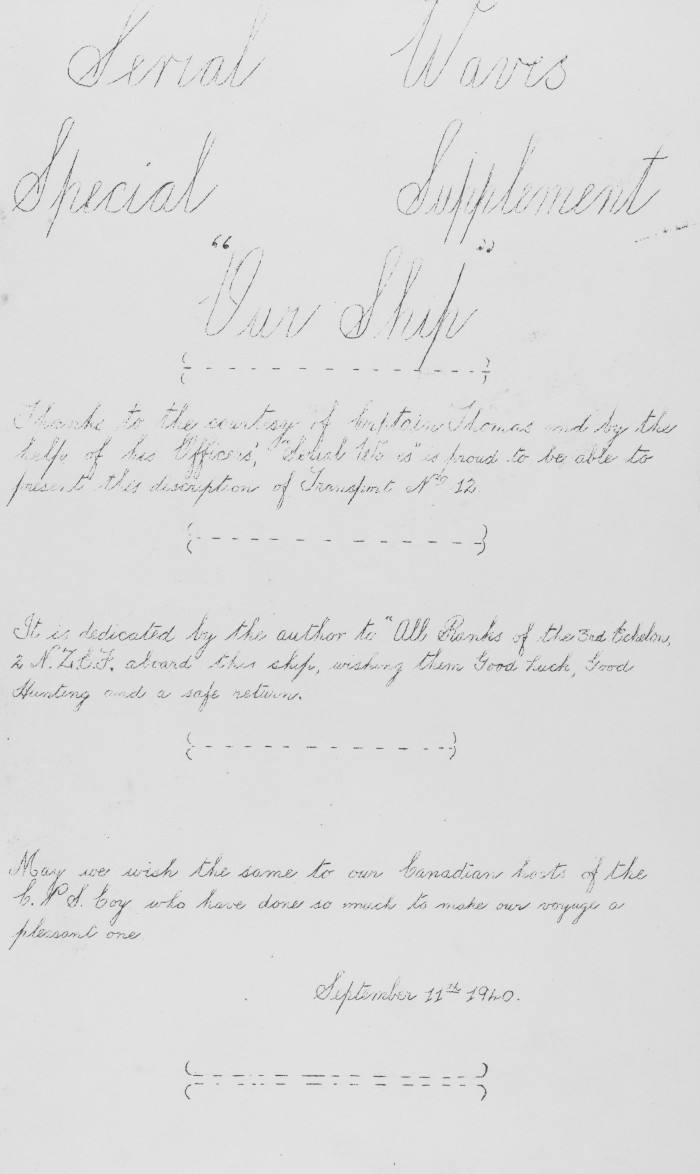 Serial Waves
Special Supplement
"Our Ship"
Thanks to the courtesy of Captain Thomas and by the
help of his Officers', "Serial Wa es" is proud to be able to
present this description of Transport No 12.
It is dedicated by the author to "All Ranks of the 3rd Echelon,
2 N.Z.E.F. aboard this ship, wishing them Good Luck, Good
Hunting and a safe return.
May we wish the same to our Canadian hosts of the
C.P.S. Coy who have done so much to make our voyage a
pleasant one
September 11th 1940.